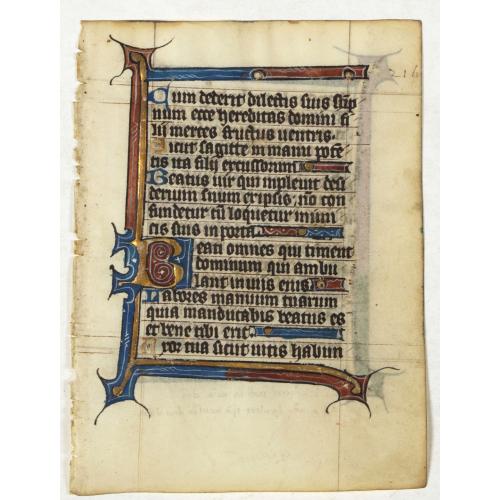 Cum dederit dilectis suis sōp
num ecce hereditas domini fi
lii merces fructus uentris.
Sicut sagitte in manu potē
tis ita filij excussorum
Beatus uir qui inpleuit desi
derium suum ex ipsis, nō con
fundetur cū loquetur inimi
cis suis in porta.
Beati omnes qui timent
dominum qui ambu
lant in uiis eius
Labores manuum tuarum
quia manducabis beatus es
et bene tibi erit
Uxor tua sicut uitis habun